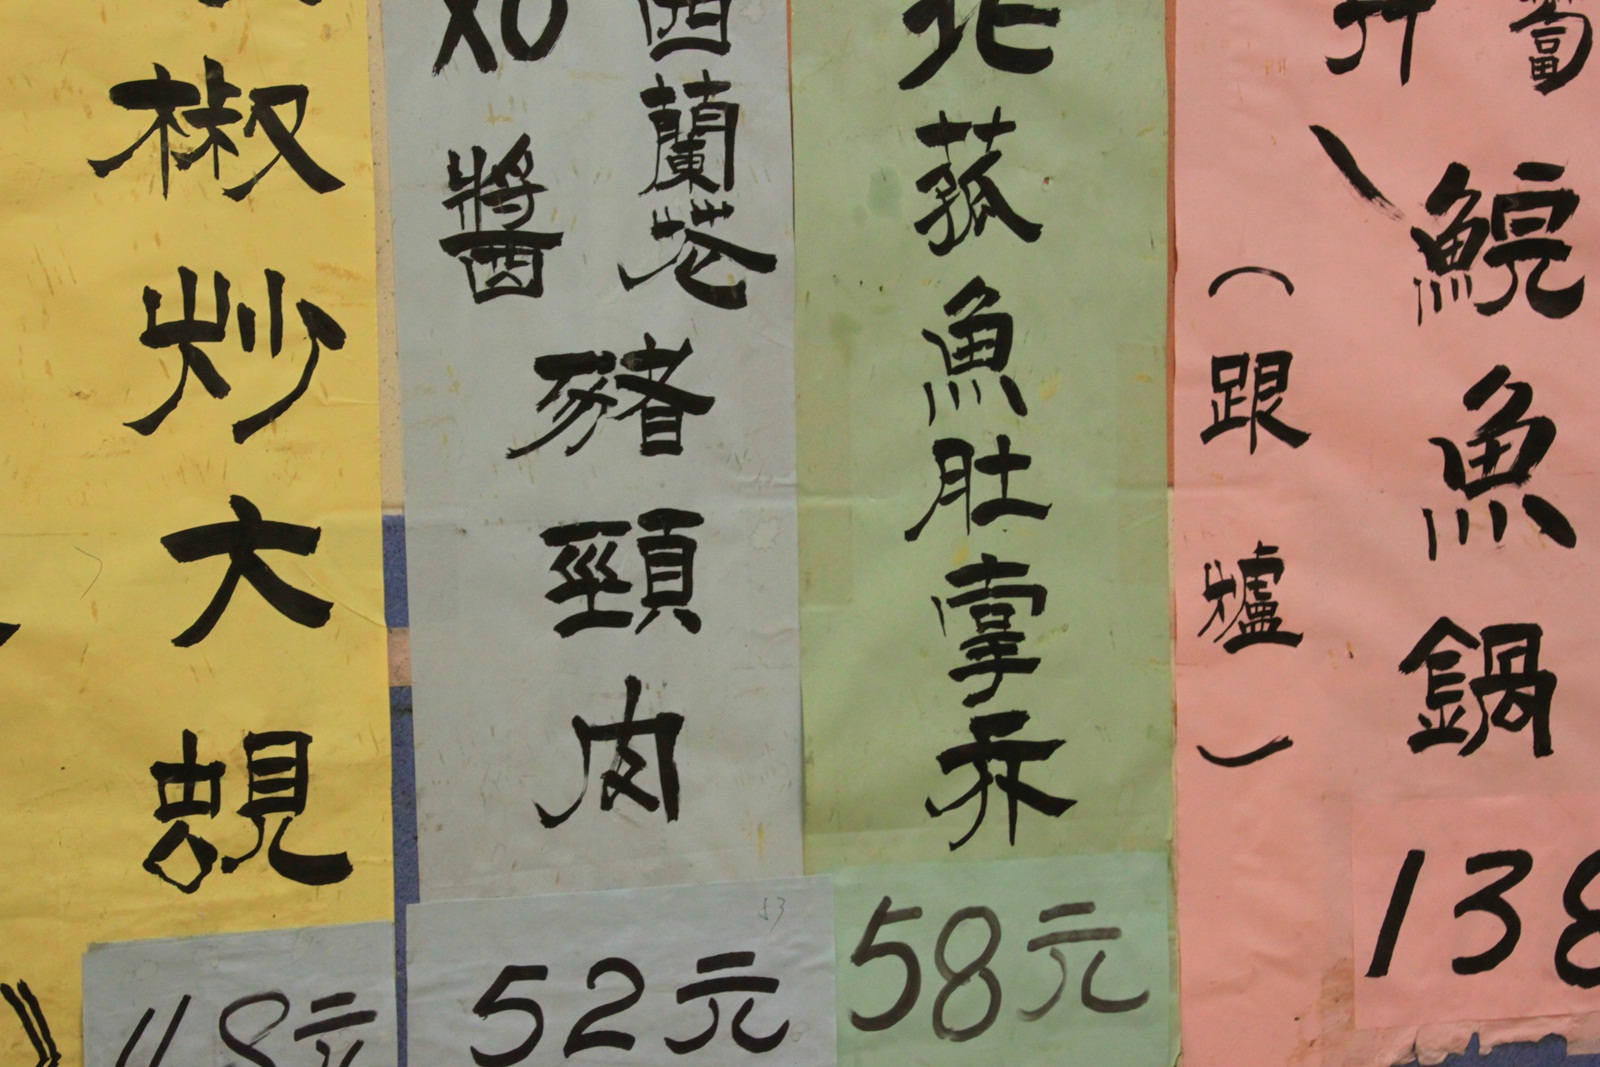 椒炒大蜆
48元
XO醬
西蘭花
豬頸肉
52元
北菰魚肚掌乔
58元
鯇魚鍋
(跟爐)
138
53